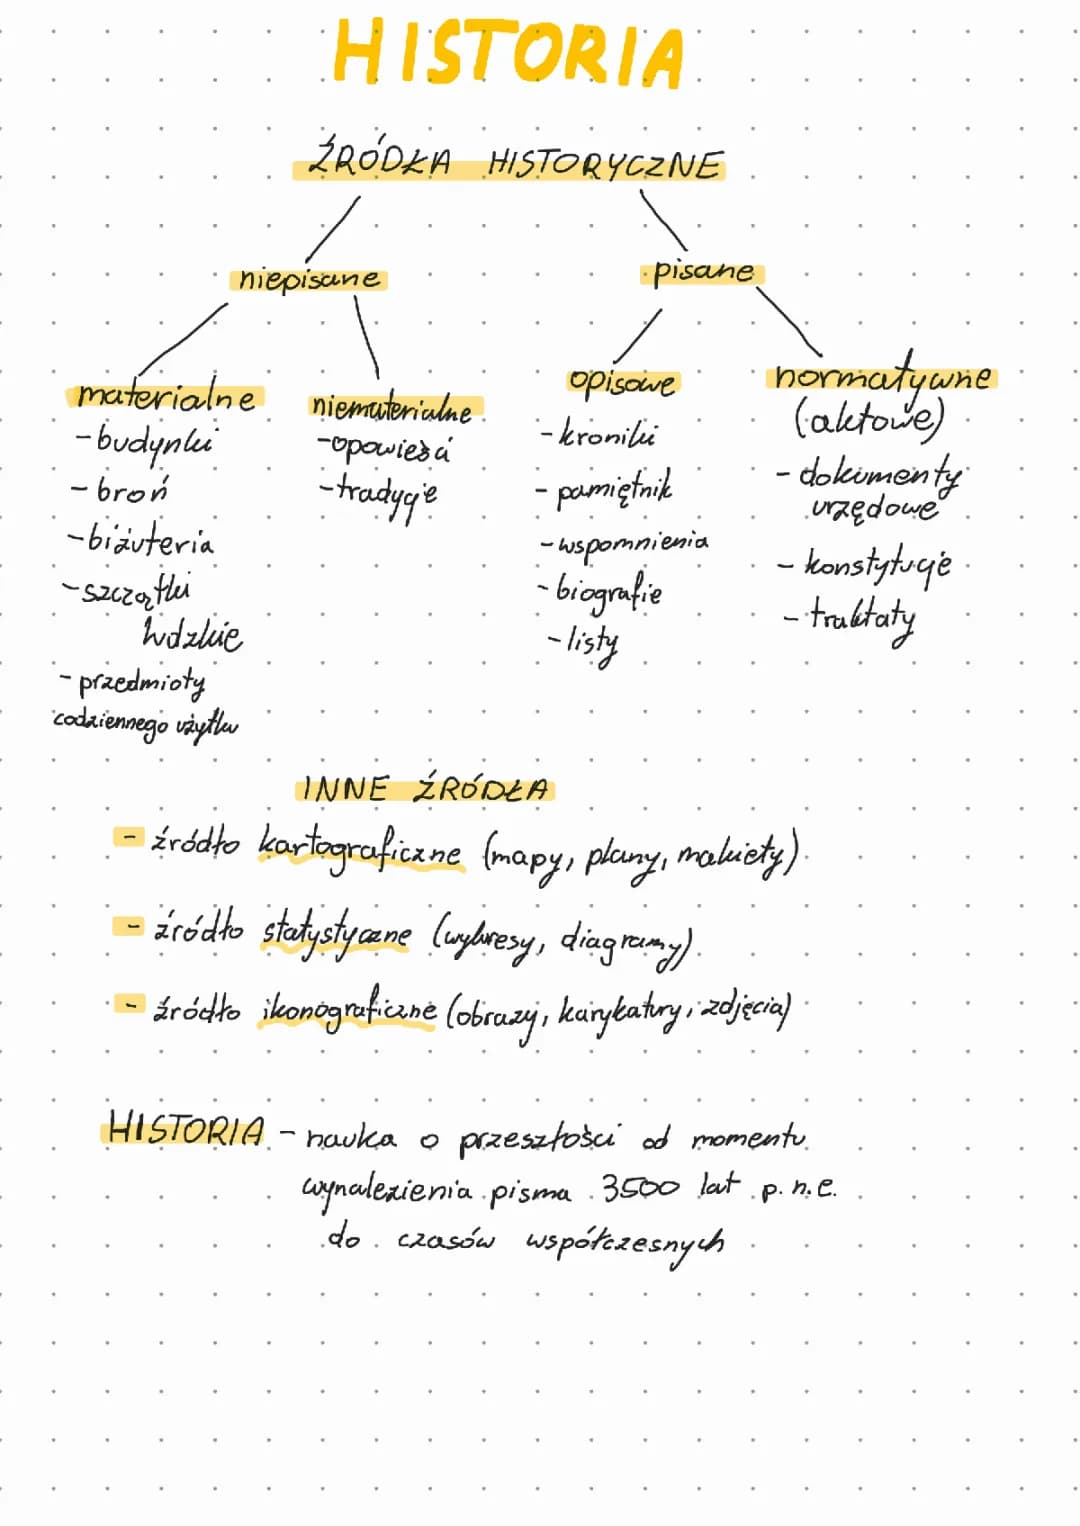 HISTORIA
ŹRÓDŁA HISTORYCZNE
niepisane
pisane
materialne
-budynki
-broń
-biżuteria
-szczątki
ludzkie
-przedmioty
codziennego użytku
niematerialne
-opowieści
-tradycje
opisowe
-kroniki
-pamiętnik
-wspomnienia
-biografie
-listy
normatywne
(aktowe)
-dokumenty
urzędowe
-konstytucje
-traktaty
INNE ŹRÓDŁA
- źródło kartograficzne (mapy, plany, makiety)
- źródło statystyczne (wykresy, diagramy)
- źródło ikonograficzne (obrazy, karykatury, zdjęcia)
HISTORIA - nauka o przeszłości od momentu
wynalezienia pisma 3500 lat p.n.e.
do czasów współczesnych